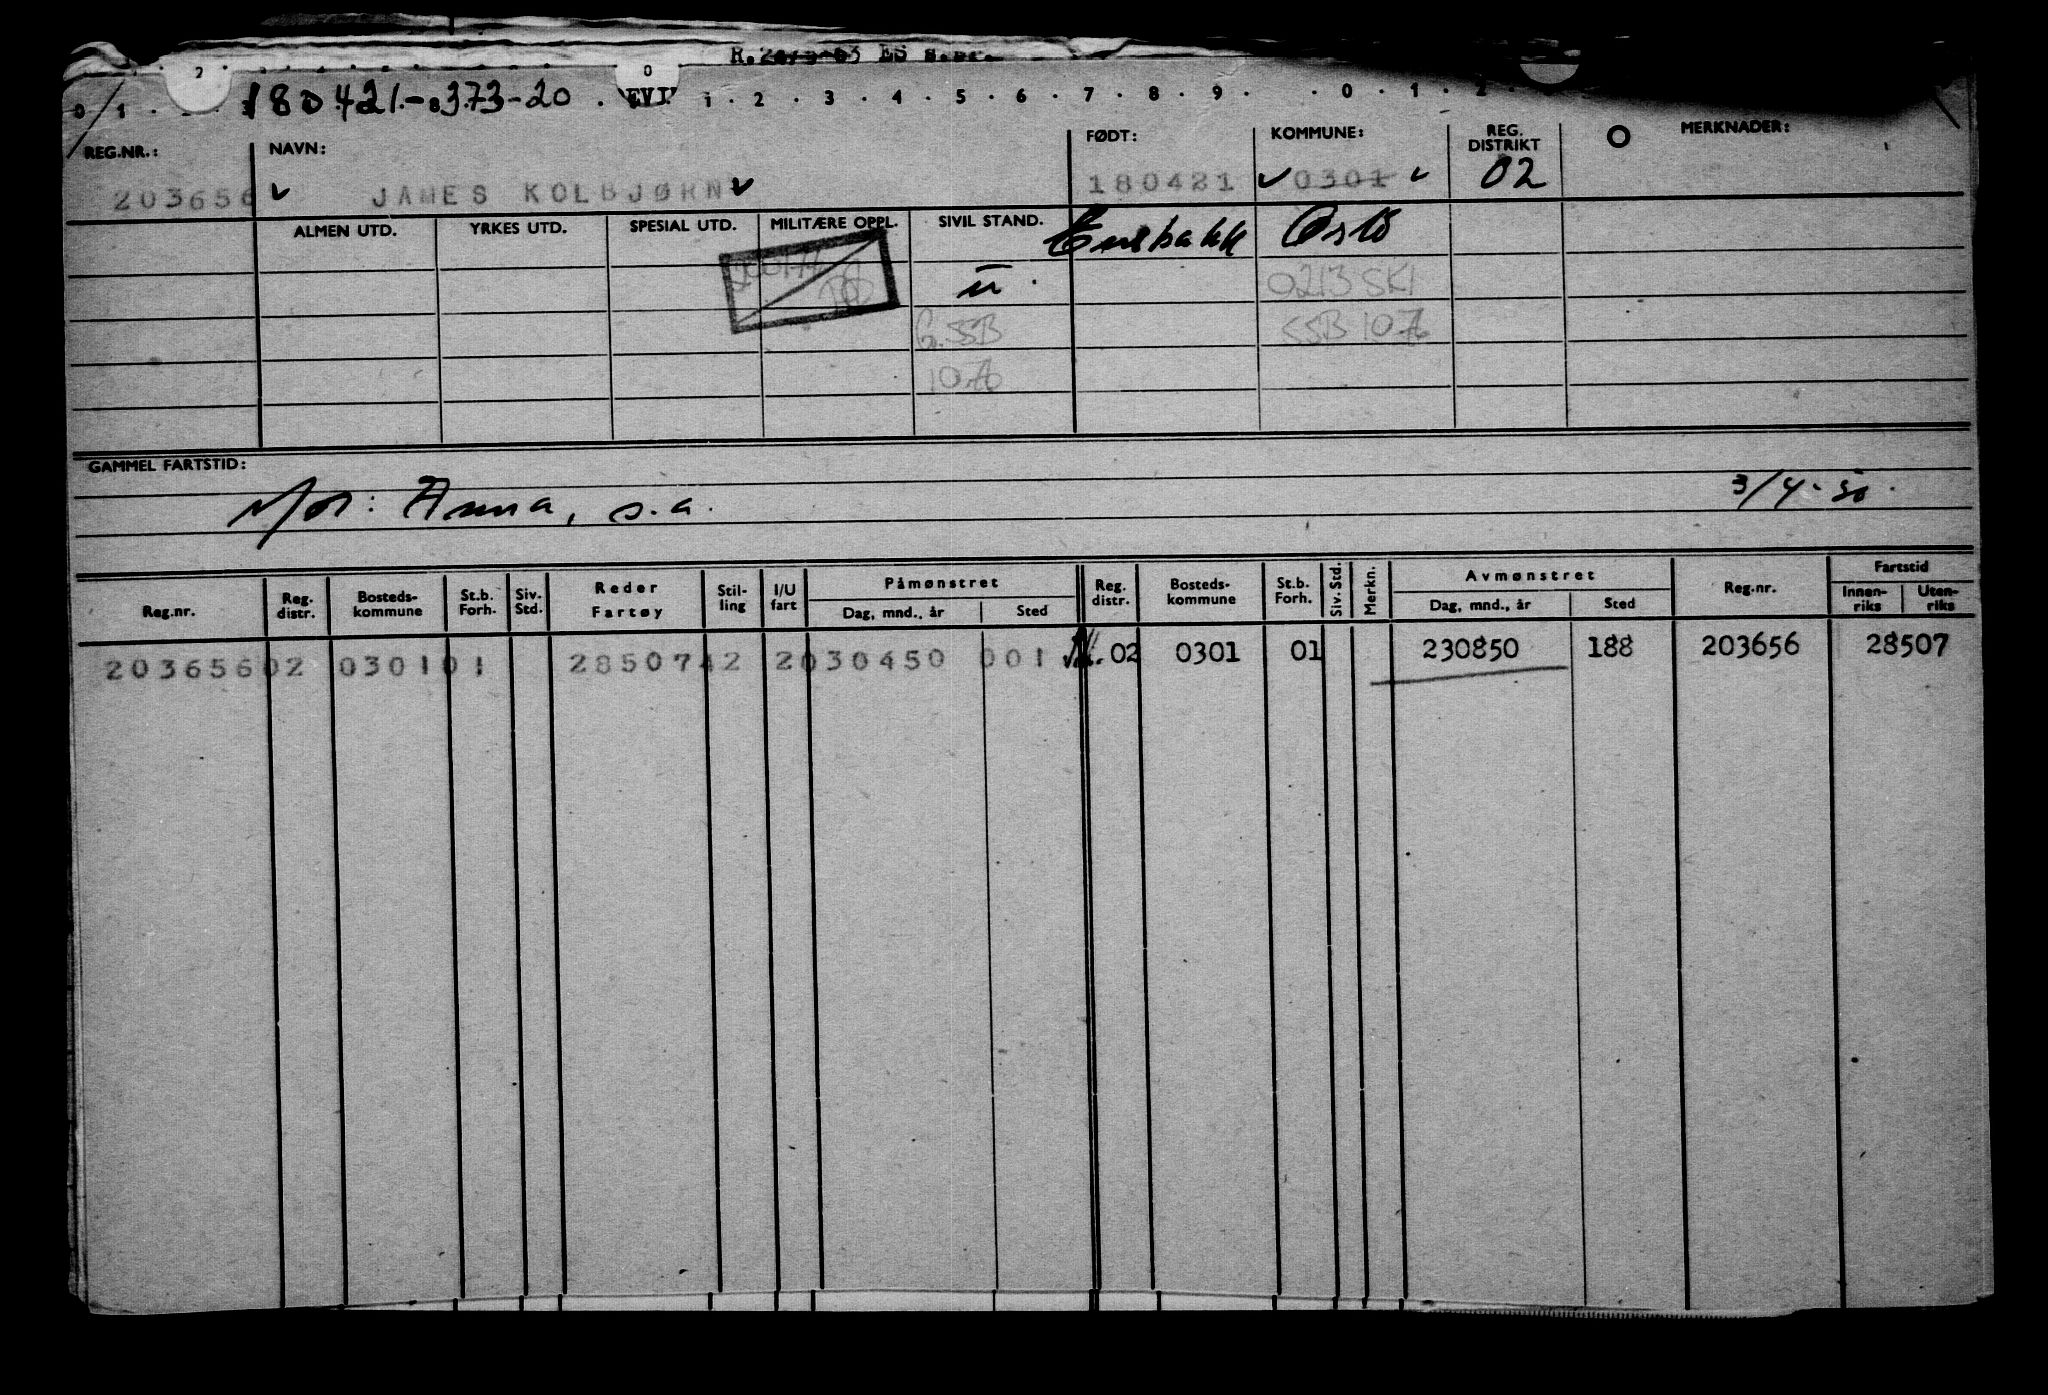 180421-373-20
0 1 2 3 4 5 6 7 8 9 0 1 2
REG.NR.: NAVN: FØDT: KOMMUNE: REG. DISTRIKT MERKNADER:
203656 JAMES KOLBJØRN 180421 0301 02
ALMEN UTD. YRKES UTD. SPESIAL UTD. MILITÆRE OPPL. SIVIL STAND. Enebakk Oslo
u 0213 SKI
SSB SSB
GAMMEL FARTSTID:
Mor: Anna, s.a. 3/4-50.
Reg.nr. Reg. distr. Bosteds-kommune St.b. Forh. Siv. Std. Reder Fartøy Stil-ling I/U fart Påmønstret Dag, mnd., år Sted Reg. distr. Bosteds-kommune St.b. Forh. Siv. Std. Merkn. Avmønstret Dag, mnd., år Sted Reg.nr. Fartstid Innen-riks Uten-riks
203656 02 0301 01 28507 42 2 030450 001 02 0301 01 230850 188 203656 28507